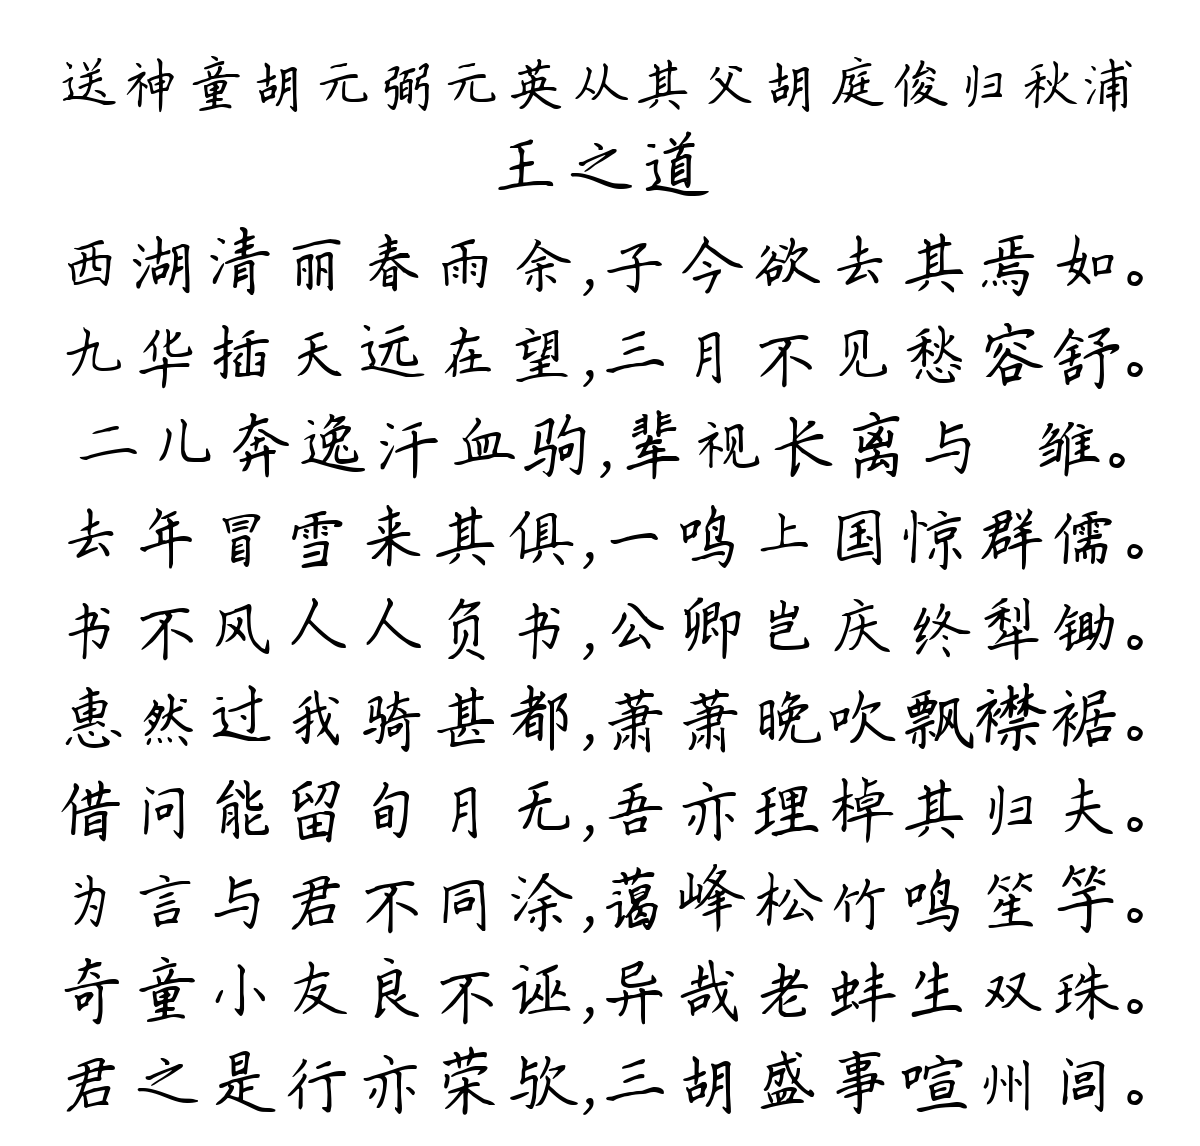 送神童胡元弼元英从其父胡庭俊归秋浦
王之道
西湖清丽春雨余,子今欲去其焉如。
九华插天远在望,三月不见愁容舒。
二儿奔逸汗血驹,辈视长离与 雏。
去年冒雪来其俱,一鸣上国惊群儒。
书不风人人负书,公卿岂庆终犁锄。
惠然过我骑甚都,萧萧晚吹飘襟裾。
借问能留旬月无,吾亦理棹其归夫。
为言与君不同涂,蔼峰松竹鸣笙竽。
奇童小友良不诬,异哉老蚌生双珠。
君之是行亦荣欤,三胡盛事喧州闾。